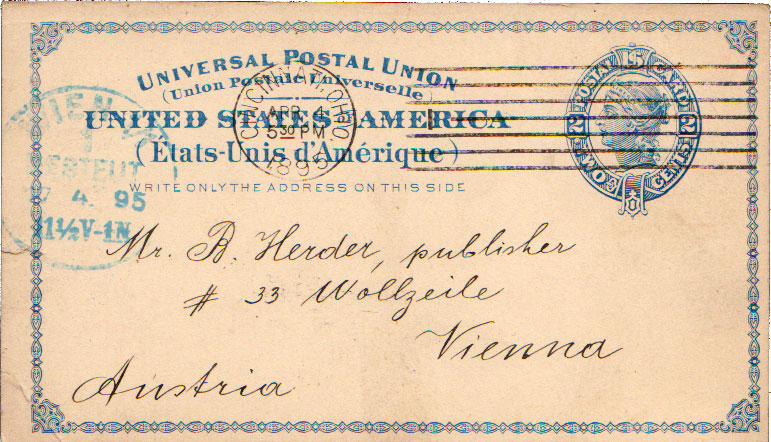 UNIVERSAL POSTAL UNION
(Union Postale Universelle)
UNITED STATES AMERICA
(États-Unis d'Amérique)
WRITE ONLY THE ADDRESS ON THIS SIDE
CINCINNATI, OHIO.
APR 4
5 30 PM
1895
POSTAL CARD
2 2
TWO CENTS
WIEN
1
BESTELLT
7 4. 95
11½V-1N
Mr. B. Herder, publisher
# 33 Wollzeile
Vienna
Austria